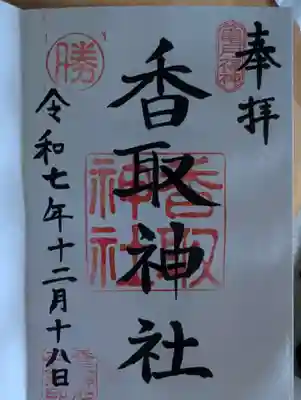 奉拝
香取神社
香取神社
勝
令和七年十二月十八日